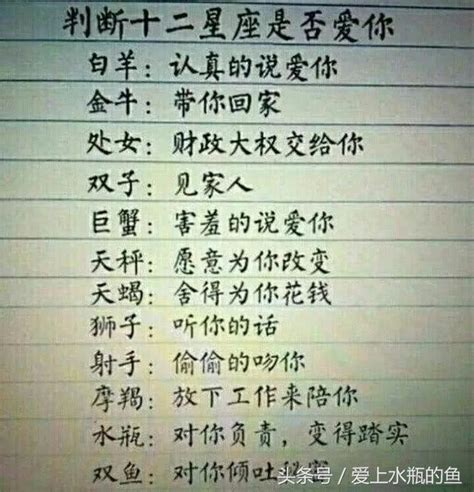 判断十二星座是否爱你
白羊：认真的说爱你
金牛：带你回家
处女：财政大权交给你
双子：见家人
巨蟹：害羞的说爱你
天秤：愿意为你改变
天蝎：舍得为你花钱
狮子：听你的话
射手：偷偷的吻你
摩羯：放下工作来陪你
水瓶：对你负责，变得踏实
双鱼：对你倾吐
头条号／爱上水瓶的鱼